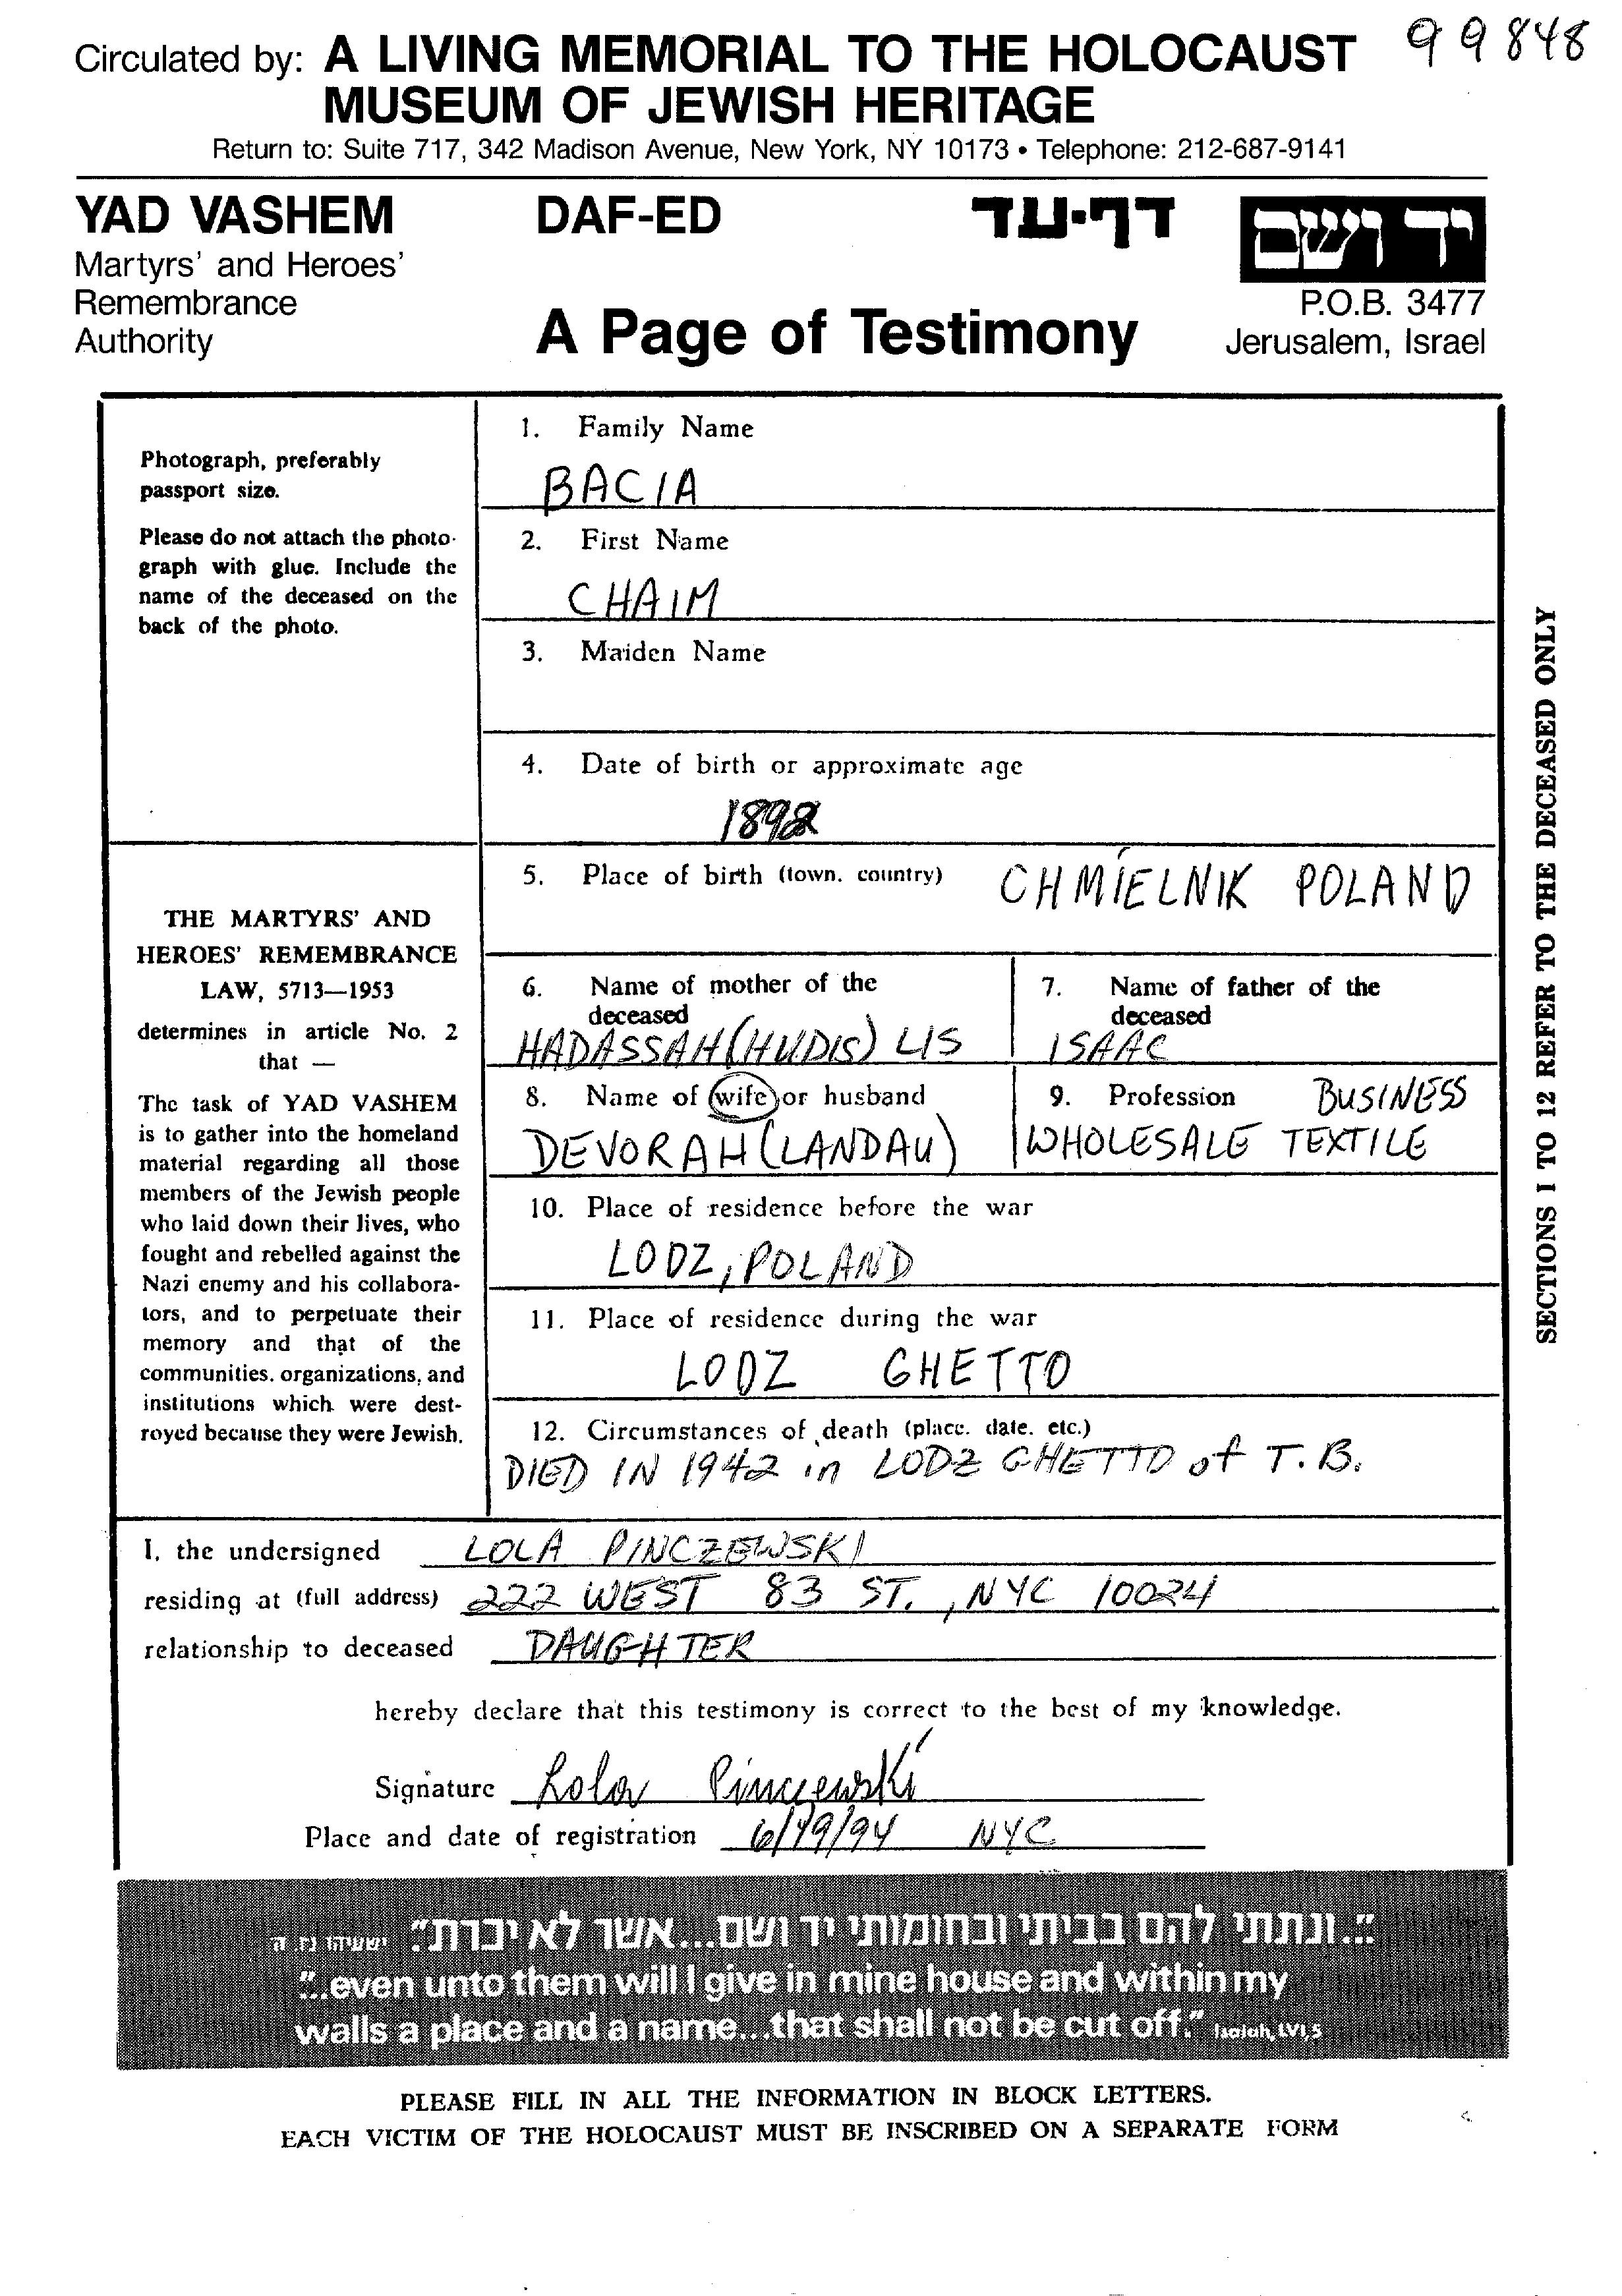 Circulated by: A LIVING MEMORIAL TO THE HOLOCAUST
99848
MUSEUM OF JEWISH HERITAGE
Return to: Suite 717, 342 Madison Avenue, New York, NY 10173 • Telephone: 212-687-9141
YAD VASHEM
Martyrs' and Heroes'
Remembrance
Authority
DAF-ED
דף-עד
A Page of Testimony
יד ושם
P.O.B. 3477
Jerusalem, Israel
Photograph, preferably
passport size.
Please do not attach the photo-
graph with glue. Include the
name of the deceased on the
back of the photo.
THE MARTYRS' AND
HEROES' REMEMBRANCE
LAW, 5713—1953
determines in article No. 2
that —
The task of YAD VASHEM
is to gather into the homeland
material regarding all those
members of the Jewish people
who laid down their lives, who
fought and rebelled against the
Nazi enemy and his collabora-
tors, and to perpetuate their
memory and that of the
communities, organizations, and
institutions which were dest-
royed because they were Jewish.
1. Family Name
BACIA
2. First Name
CHAIM
3. Maiden Name
4. Date of birth or approximate age
1892
5. Place of birth (town, country) CHMIELNIK POLAND
6. Name of mother of the
deceased
HADASSAH (HUDIS) LIS
7. Name of father of the
deceased
ISAAC
8. Name of wife or husband
DEVORAH (LANDAU)
9. Profession BUSINESS
WHOLESALE TEXTILE
10. Place of residence before the war
LODZ, POLAND
11. Place of residence during the war
LODZ GHETTO
12. Circumstances of death (place, date, etc.)
DIED IN 1942 in LODZ GHETTO of T.B.
SECTIONS 1 TO 12 REFER TO THE DECEASED ONLY
I, the undersigned LOLA PINCZEWSKI
residing at (full address) 222 WEST 83 ST., NYC 10024
relationship to deceased DAUGHTER
hereby declare that this testimony is correct to the best of my knowledge.
Signature Lola Pinczewski
Place and date of registration 6/19/94 NYC
"...ונתתי להם בביתי ובחומותי יד ושם...אשר לא יכרת". ישעיהו נו, ה
"...even unto them will I give in mine house and within my
walls a place and a name...that shall not be cut off." Isaiah, LVI,5
PLEASE FILL IN ALL THE INFORMATION IN BLOCK LETTERS.
EACH VICTIM OF THE HOLOCAUST MUST BE INSCRIBED ON A SEPARATE FORM